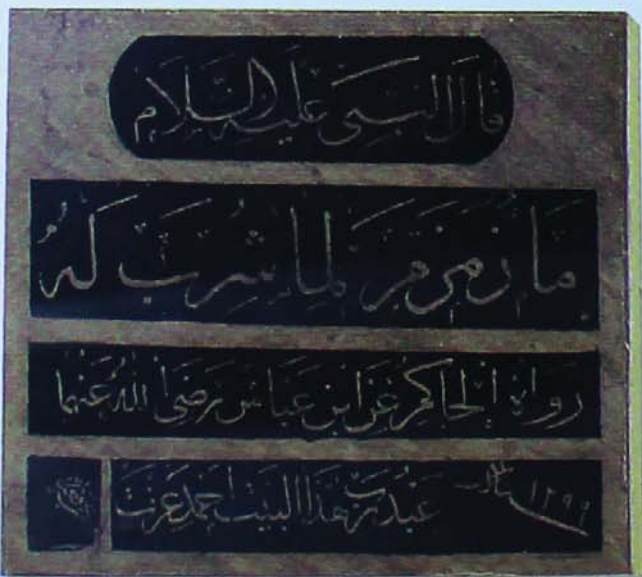 قَالَ النَّبِيُّ عَلَيْهِ السَّلَامُ
مَاءُ زَمْزَمَ لِمَا شُرِبَ لَهُ
رواه الحاكم عن ابن عباس رضي الله عنهما
عبد رب هذا البيت احمد عزت سنة ١٢٩٩